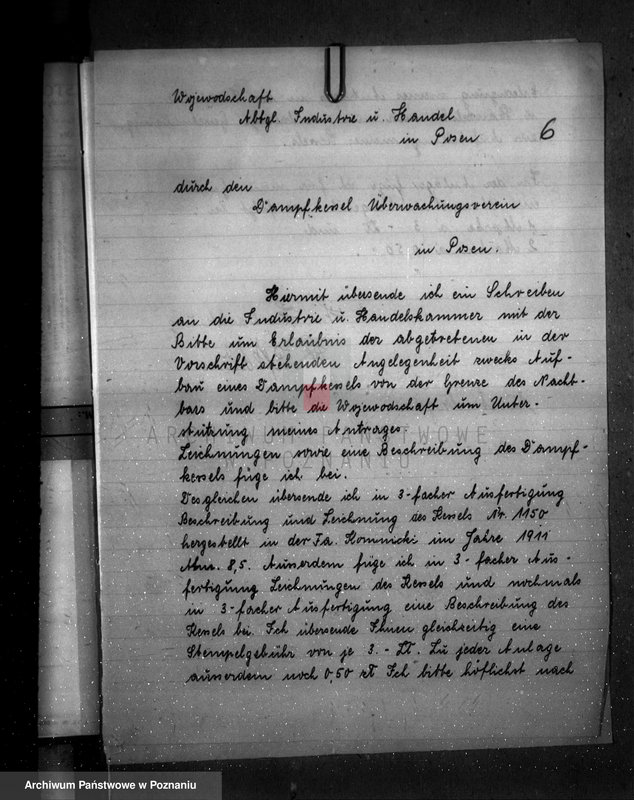 Wojewodschaft
Abtgl. Industrie u. Handel
in Posen
6
durch den
Dampfkessel Überwachungsverein
in Posen.
Hiermit übersende ich ein Schreiben
an die Industrie u. Handelskammer mit der
Bitte um Erlaubnis der abgetretenen in der
Vorschrift stehenden Angelegenheit zwecks Auf-
bau eines Dampfkessels von der Grenze des Nacht-
bars und bitte die Wojewodschaft um Unter-
stützung meines Antrages.
Zeichnungen sowie eine Beschreibung des Dampf-
kessels füge ich bei.
Desgleichen übersende ich in 3-facher Ausfertigung
Beschreibung und Zeichnung des Kessels Nr. 1150
hergestellt in der Fa. Komnicki im Jahre 1911
Atm. 8,5. Ausserdem füge ich in 3-facher Aus-
fertigung Zeichnungen des Kessels und nochmals
in 3-facher Ausfertigung eine Beschreibung des
Kessels bei. Ich übersende Ihnen gleichzeitig eine
Stempelgebühr von je 3.- Zł. Zu jeder Anlage
ausserdem noch 0,50 zł Ich bitte höflichst nach
ARCHIWUM PAŃSTWOWE
W POZNANIU
Archiwum Państwowe w Poznaniu